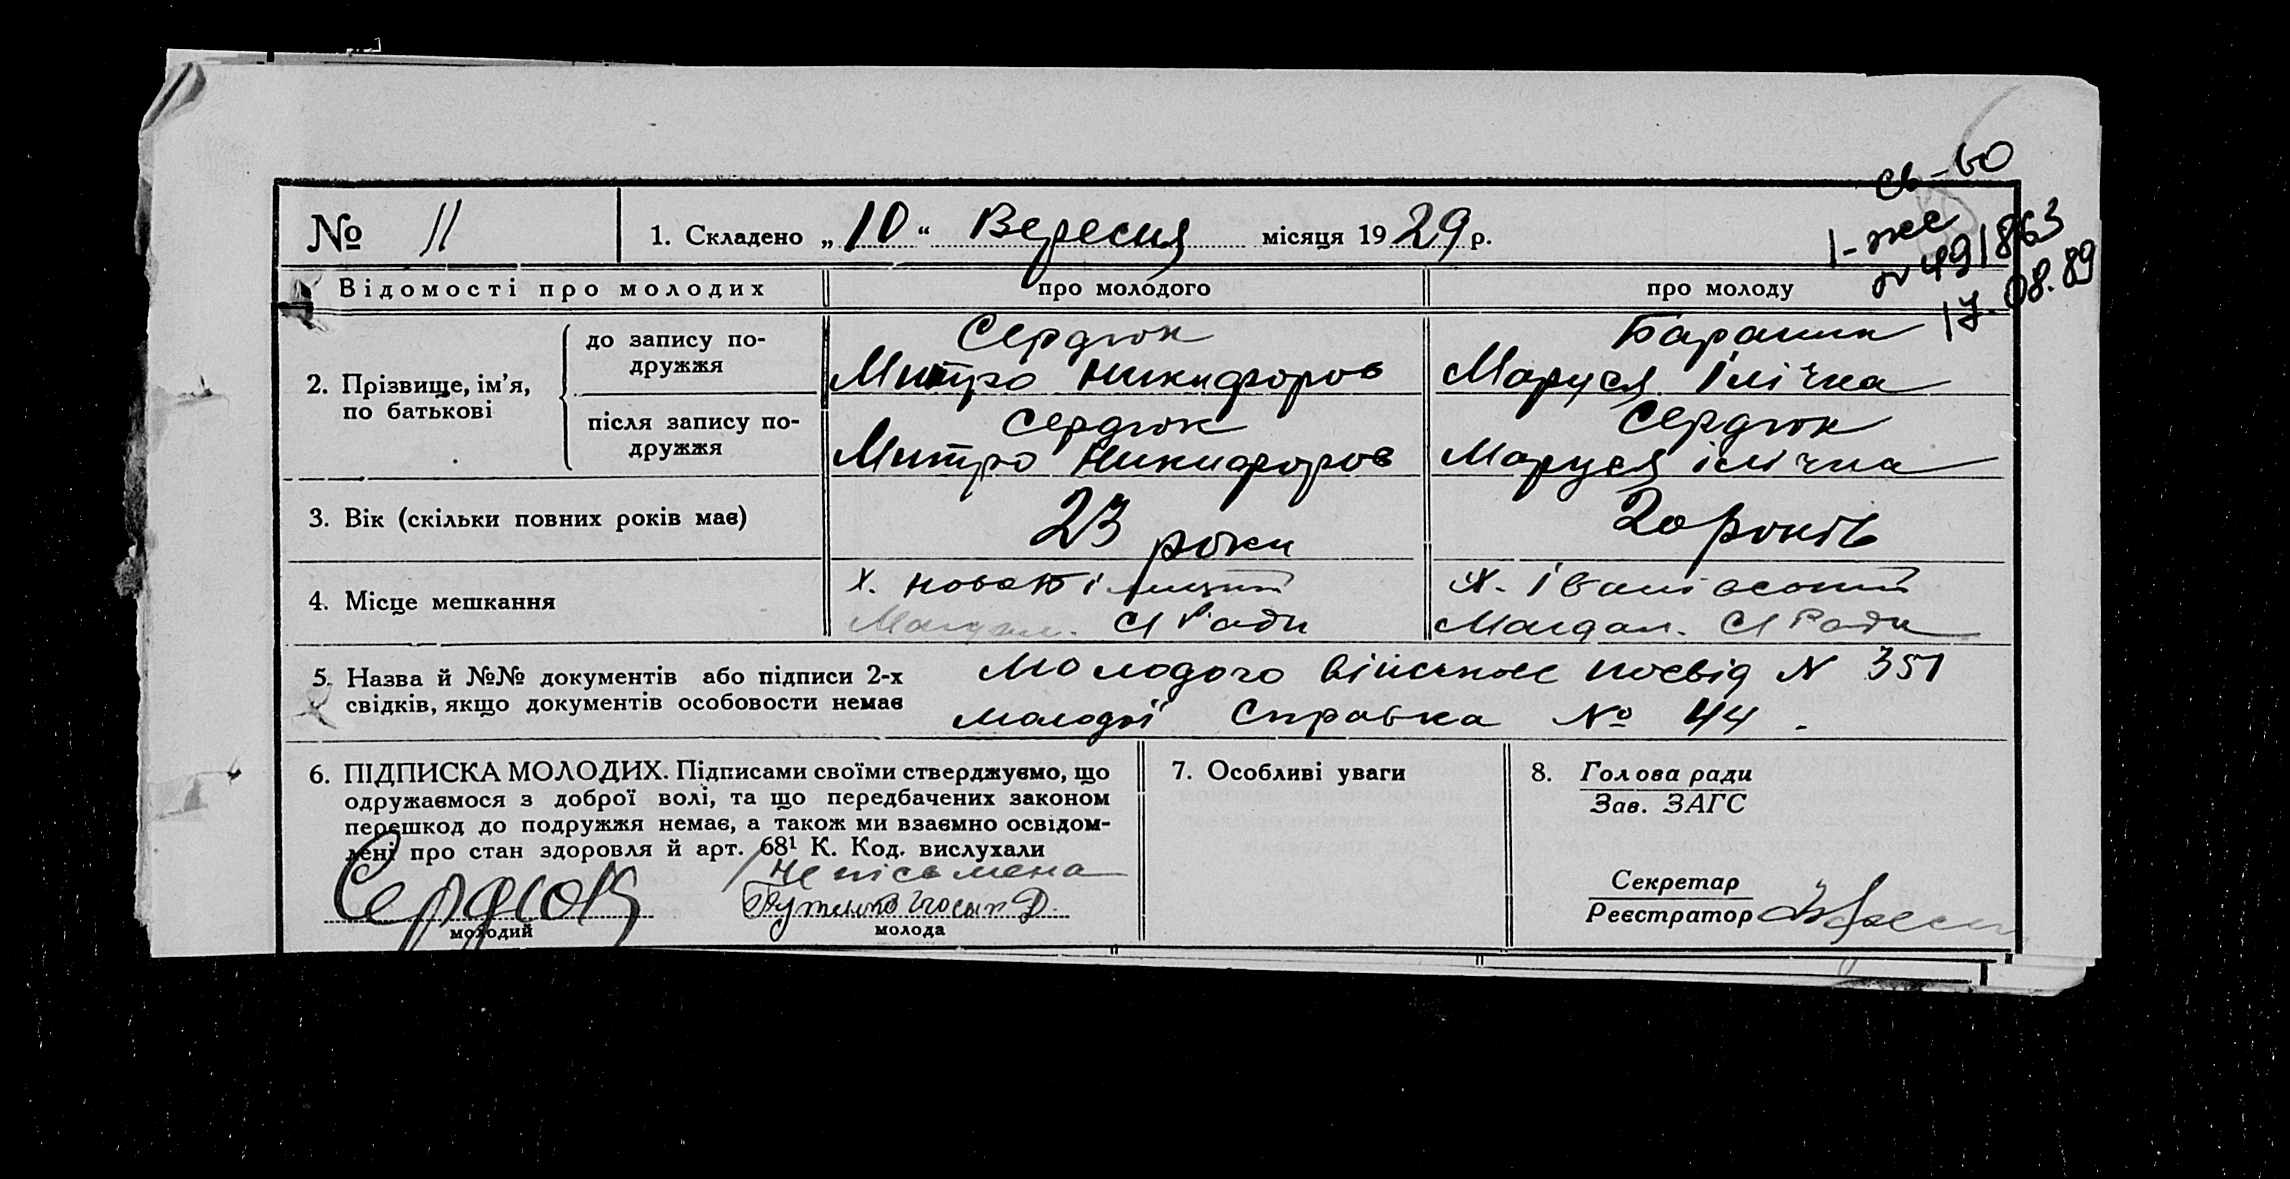 № 11
1. Складено „10“ Вересня місяця 1929 р.
св-во
1-жс
№ 491863
17.08.89
Відомості про молодих
про молодого
про молоду
2. Прізвище, ім’я,
по батькові
до запису по-
дружжя
Сердюк
Митро Никифоров
Маруся Ілічна
після запису по-
дружжя
Сердюк
Митро Никифоров
Сердюк
Маруся ілічна
3. Вік (скільки повних років має)
23 роки
20 років
4. Місце мешкання
х.
Магдал. С/Ради
х. Іванівський
Магдал. С/Ради
5. Назва й №№ документів або підписи 2-х
свідків, якщо документів особовости немає
Молодого військове посвід N 351
молодої Справка № 44.
6. ПІДПИСКА МОЛОДИХ. Підписами своїми стверджуємо, що
одружаємося з доброї волі, та що передбачених законом
перешкод до подружжя немає, а також ми взаємно освідом-
лені про стан здоровля й арт. 68¹ К. Код. вислухали
Сердюк
молодий
Неписьмена
молода
7. Особливі уваги
8. Голова ради
Зав. ЗАГС
Секретар
Реєстратор